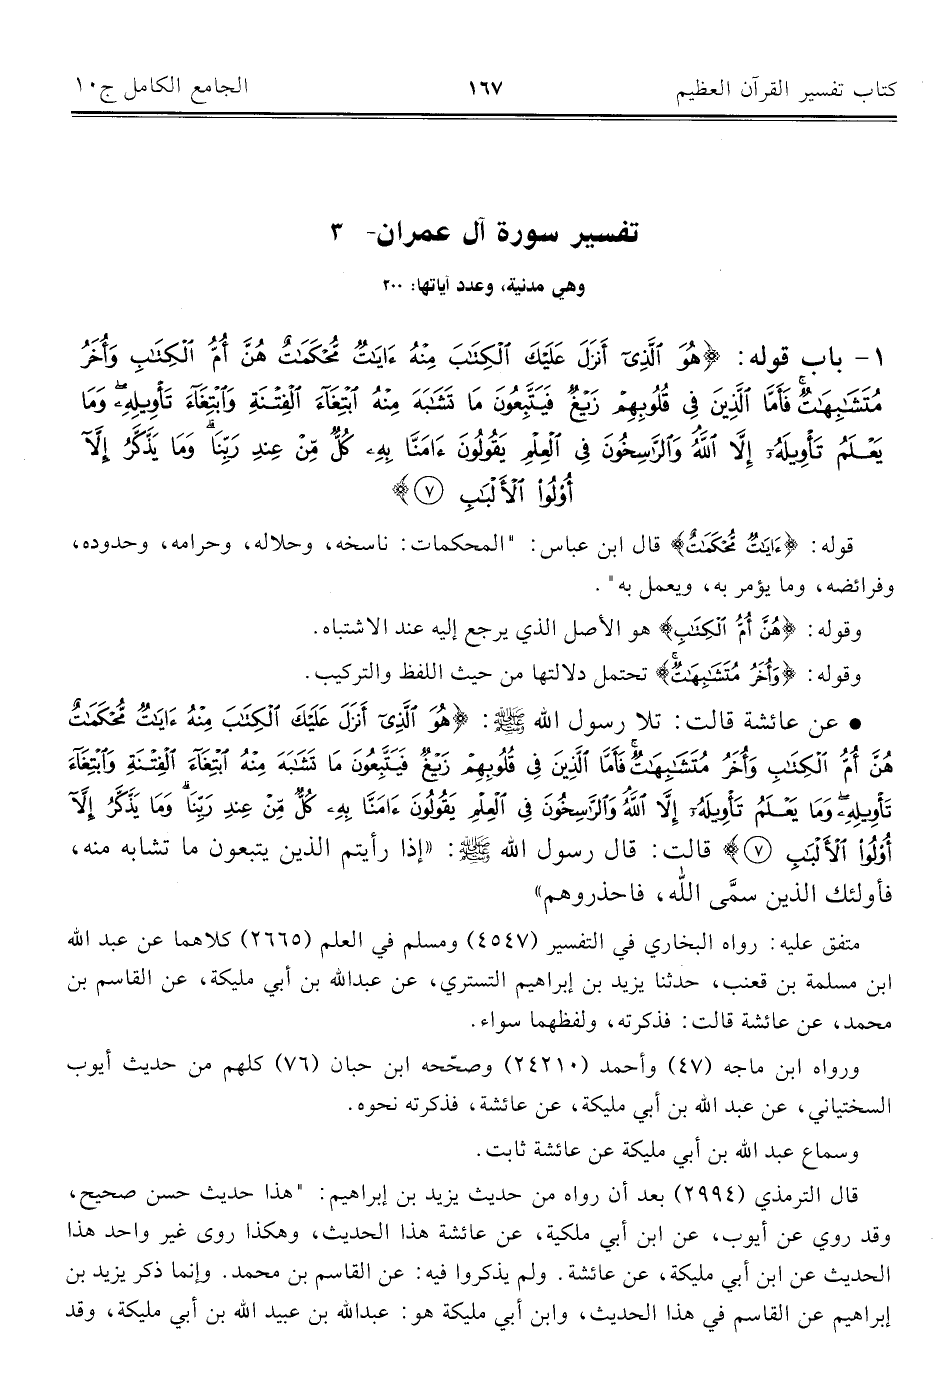 كتاب تفسير القرآن العظيم ١٦٧ الجامع الكامل ج١٠
تفسير سورة آل عمران- ٣
وهي مدنية، وعدد آياتها: ٢٠٠
١- باب قوله: ﴿هُوَ الَّذِىٓ أَنزَلَ عَلَيْكَ الْكِتَٰبَ مِنْهُ ءَايَٰتٌ مُّحْكَمَٰتٌ هُنَّ أُمُّ الْكِتَٰبِ وَأُخَرُ
مُتَشَٰبِهَٰتٌ ۖ فَأَمَّا الَّذِينَ فِى قُلُوبِهِمْ زَيْغٌ فَيَتَّبِعُونَ مَا تَشَٰبَهَ مِنْهُ ابْتِغَآءَ الْفِتْنَةِ وَابْتِغَآءَ تَأْوِيلِهِۦ ۗ وَمَا
يَعْلَمُ تَأْوِيلَهُۥٓ إِلَّا اللَّهُ ۗ وَالرَّٰسِخُونَ فِى الْعِلْمِ يَقُولُونَ ءَامَنَّا بِهِۦ كُلٌّ مِّنْ عِندِ رَبِّنَا ۗ وَمَا يَذَّكَّرُ إِلَّآ
أُوْلُوا۟ الْأَلْبَٰبِ ٧﴾
قوله: ﴿ءَايَٰتٌ مُّحْكَمَٰتٌ﴾ قال ابن عباس: "المحكمات: ناسخه، وحلاله، وحرامه، وحدوده،
وفرائضه، وما يؤمر به، ويعمل به".
وقوله: ﴿هُنَّ أُمُّ الْكِتَٰبِ﴾ هو الأصل الذي يرجع إليه عند الاشتباه.
وقوله: ﴿وَأُخَرُ مُتَشَٰبِهَٰتٌ ۖ﴾ تحتمل دلالتها من حيث اللفظ والتركيب.
• عن عائشة قالت: تلا رسول الله ﷺ: ﴿هُوَ الَّذِىٓ أَنزَلَ عَلَيْكَ الْكِتَٰبَ مِنْهُ ءَايَٰتٌ مُّحْكَمَٰتٌ
هُنَّ أُمُّ الْكِتَٰبِ وَأُخَرُ مُتَشَٰبِهَٰتٌ ۖ فَأَمَّا الَّذِينَ فِى قُلُوبِهِمْ زَيْغٌ فَيَتَّبِعُونَ مَا تَشَٰبَهَ مِنْهُ ابْتِغَآءَ الْفِتْنَةِ وَابْتِغَآءَ
تَأْوِيلِهِۦ ۗ وَمَا يَعْلَمُ تَأْوِيلَهُۥٓ إِلَّا اللَّهُ ۗ وَالرَّٰسِخُونَ فِى الْعِلْمِ يَقُولُونَ ءَامَنَّا بِهِۦ كُلٌّ مِّنْ عِندِ رَبِّنَا ۗ وَمَا يَذَّكَّرُ إِلَّآ
أُوْلُوا۟ الْأَلْبَٰبِ ٧﴾ قالت: قال رسول الله ﷺ: «إذا رأيتم الذين يتبعون ما تشابه منه،
فأولئك الذين سمَّى الله، فاحذروهم»
متفق عليه: رواه البخاري في التفسير (٤٥٤٧) ومسلم في العلم (٢٦٦٥) كلاهما عن عبد الله
ابن مسلمة بن قعنب، حدثنا يزيد بن إبراهيم التستري، عن عبدالله بن أبي مليكة، عن القاسم بن
محمد، عن عائشة قالت: فذكرته، ولفظهما سواء.
ورواه ابن ماجه (٤٧) وأحمد (٢٤٢١٠) وصحّحه ابن حبان (٧٦) كلهم من حديث أيوب
السختياني، عن عبد الله بن أبي مليكة، عن عائشة، فذكرته نحوه.
وسماع عبد الله بن أبي مليكة عن عائشة ثابت.
قال الترمذي (٢٩٩٤) بعد أن رواه من حديث يزيد بن إبراهيم: "هذا حديث حسن صحيح،
وقد روي عن أيوب، عن ابن أبي ملكية، عن عائشة هذا الحديث، وهكذا روى غير واحد هذا
الحديث عن ابن أبي مليكة، عن عائشة. ولم يذكروا فيه: عن القاسم بن محمد. وإنما ذكر يزيد بن
إبراهيم عن القاسم في هذا الحديث، وابن أبي مليكة هو: عبدالله بن عبيد الله بن أبي مليكة، وقد